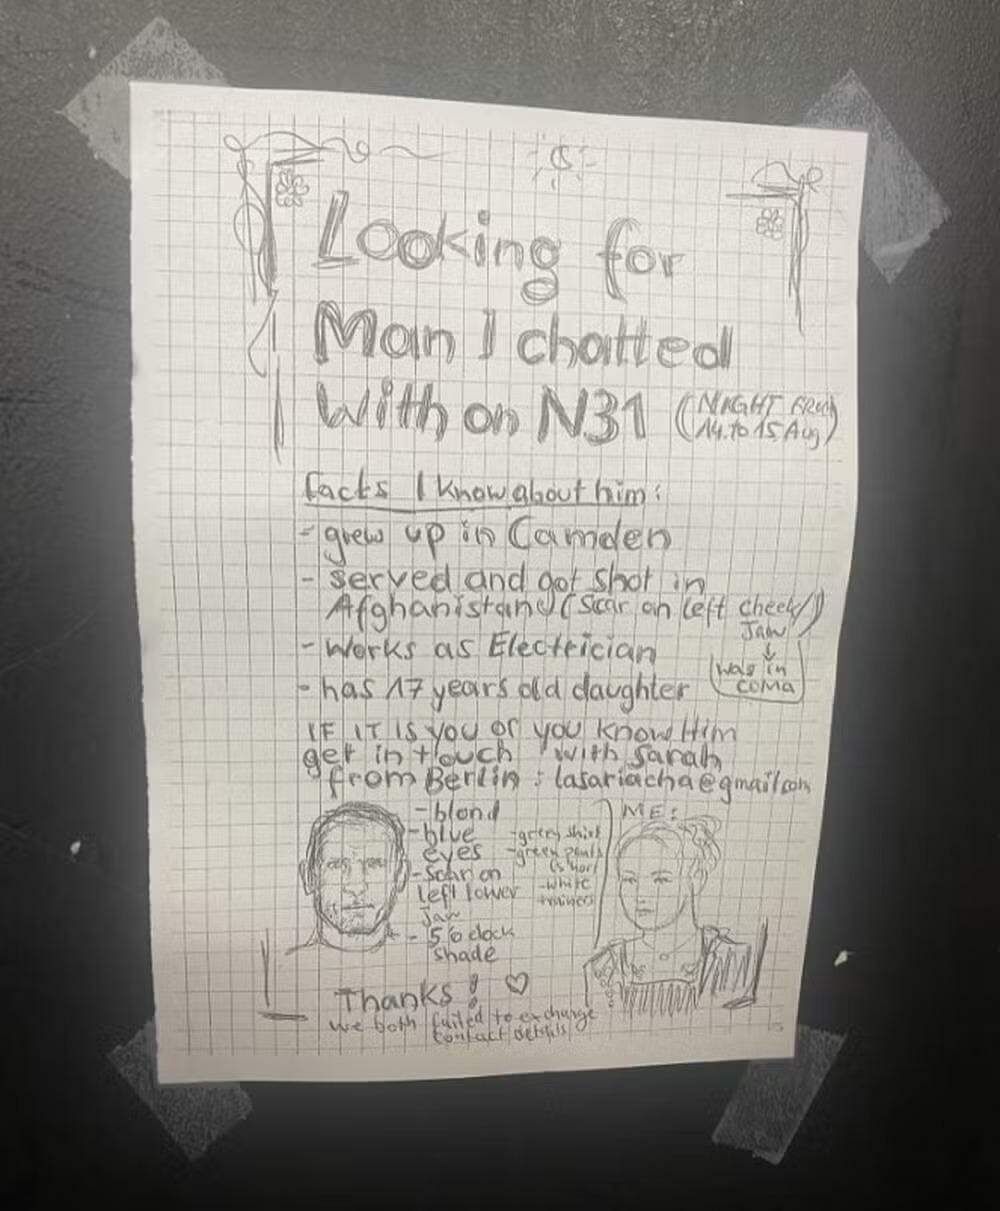 Looking for
Man I chatted
With on N31 (NIGHT FROM
14. to 15 Aug)
facts I know about him:
- grew up in Camden
- served and got shot in
Afghanistan (scar on left cheek/)
Jaw
- works as Electrician
was in
COMA
- has 17 years old daughter
IF IT IS YOU or you know Him
get in touch with Sarah
from Berlin: lasariacha@gmail.com
- blond
- blue
eyes
- scar on
left lower
Jaw
- 5 o clock
shade
- green shirt
- green pants
(short
- white
trainers
ME:
Thanks!
we both failed to exchange
contact details